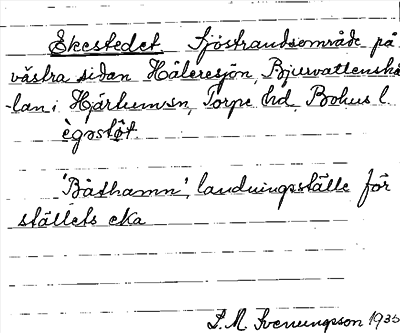 Ekestedet Sjöstrandsområde på
västra sidan Håleresjön, Bjurvattenskä
-lan i Hjärtum sn, Torpe hd, Bohus l.
ègǝstǝ̀t.
'Båthamn', landningsställe för
ställets eka
S. M. Svenungsson 1935